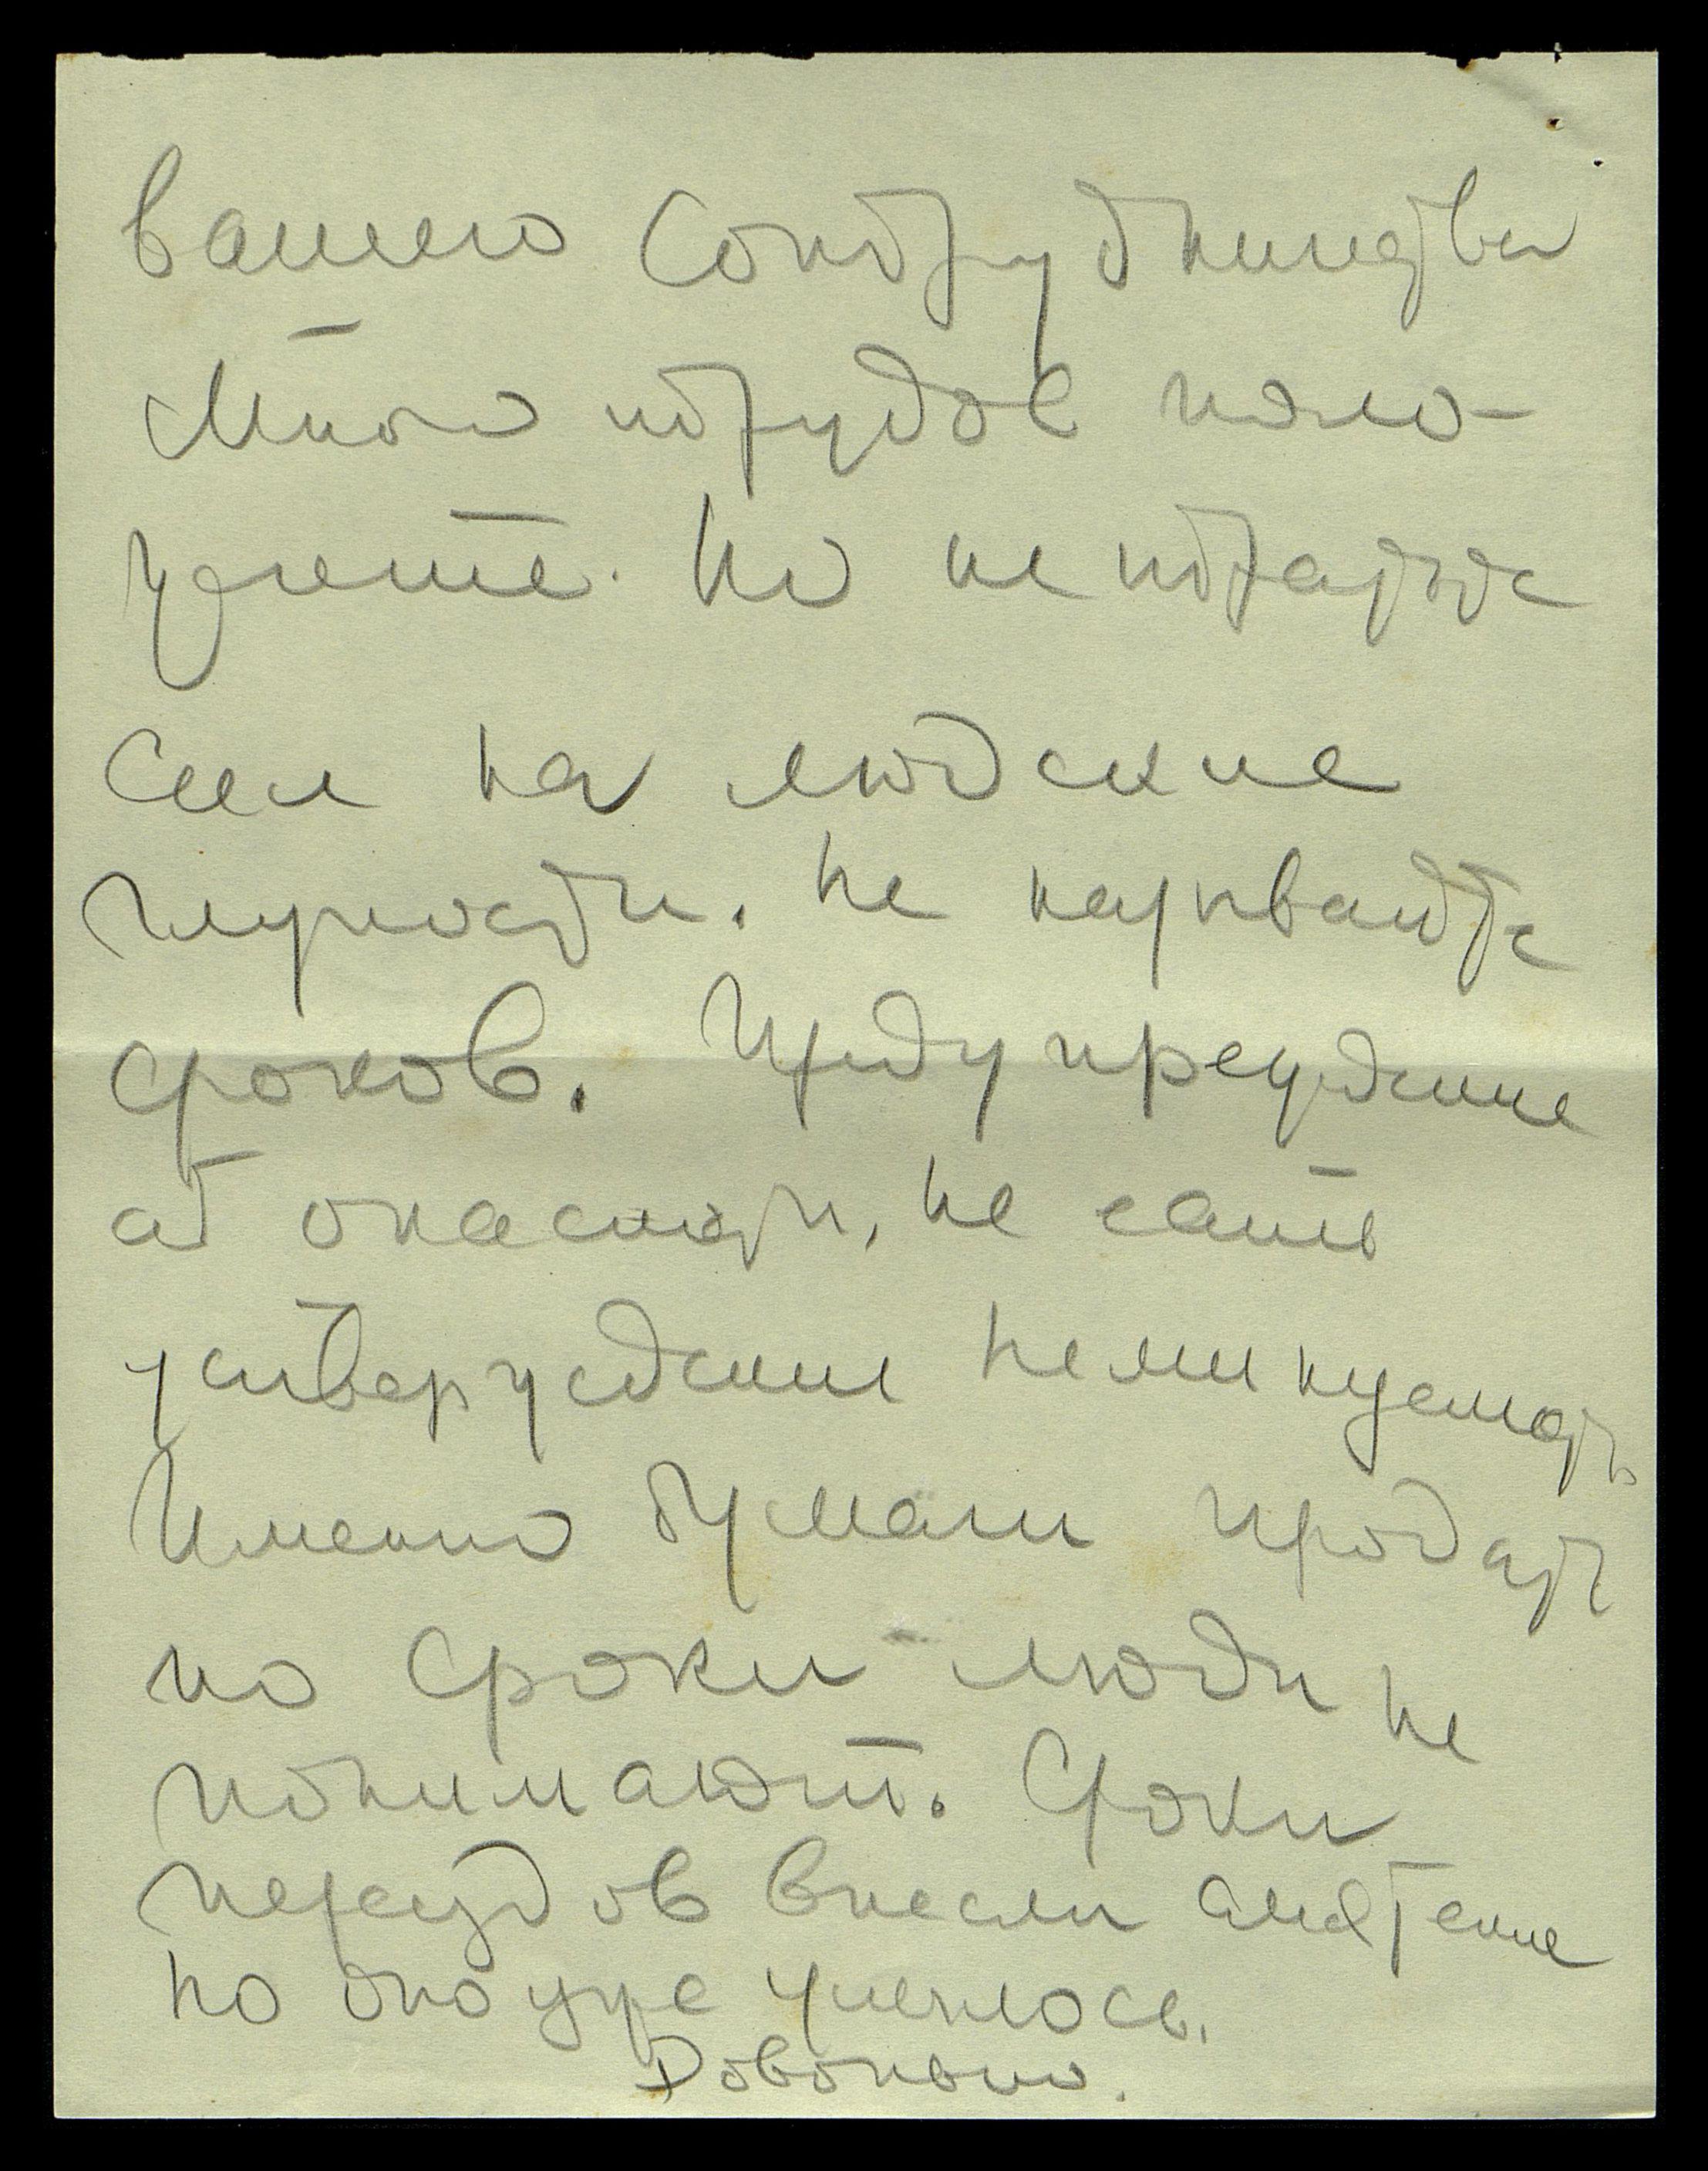 вашего сотрудничества
Много трудов поло-
жите. Но не тратьте
сил на людские
глупости. Не называйте
сроков. Предупреждение
об опасности, не есть
утверждение неминуемости
Именно бумаги продать
но сроки люди не
понимают. Сроки
переходов внесли смятение
но оно уже улеглось.
Довольно.